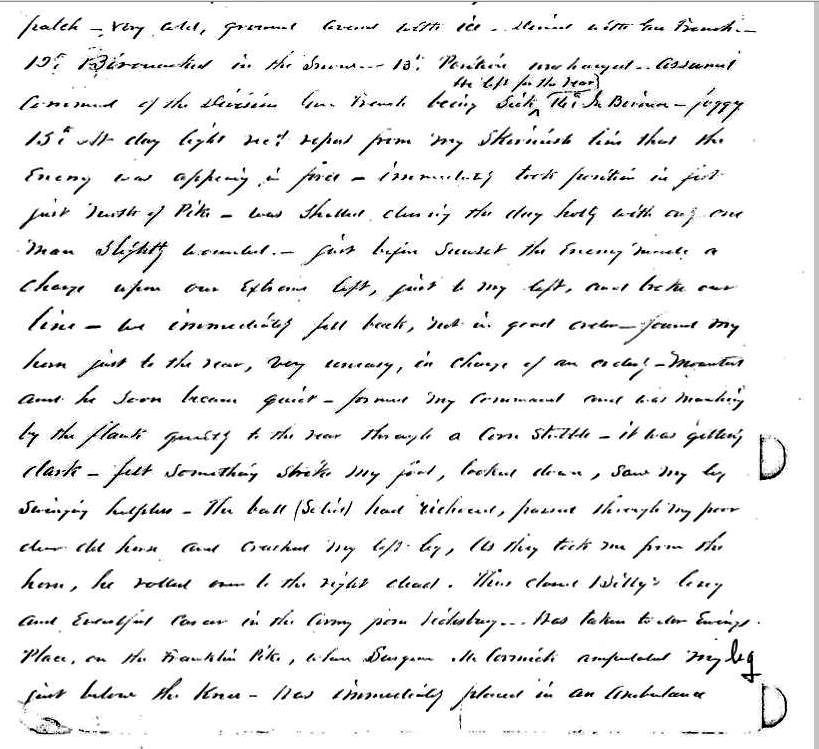 patch - very cold, ground covered with ice - dined with Gen French -
12th Bivouacked in the Snow - 13th Position unchanged - assumed
he left for the rear)
Command of the Division Gen French being Sick, 14th In Bivouac - foggy
15th At day light recd report from my Skirmish line that the
Enemy was appearing in force - immediately took position in
just North of Pike - was Shelled during the day hotly with only one
man Slightly wounded. - just before Sunset the Enemy made a
charge upon our Extreme left, just to my left, and broke our
line - we immediately fell back, not in good order - found my
horse just to the rear, very uneasy, in charge of an orderly - Mounted
and he soon became quiet - formed my command and was marching
by the flank quietly to the rear through a Corn Stubble - it was getting
dark - felt something strike my foot, looked down, saw my leg
Swinging helpless - The ball (Solid) had ricohed, passed through my poor
dear old horse and crushed my left leg, As they took me from the
horse, he rolled over to the right dead. Thus closed Billy's long
and Eventful Career in the Army from Vicksburg... Was taken to Ewings
Place, on the Franklin Pike, where Surgeon McCormick amputated my leg
just below the Knee - Was immediately placed in an Ambulance